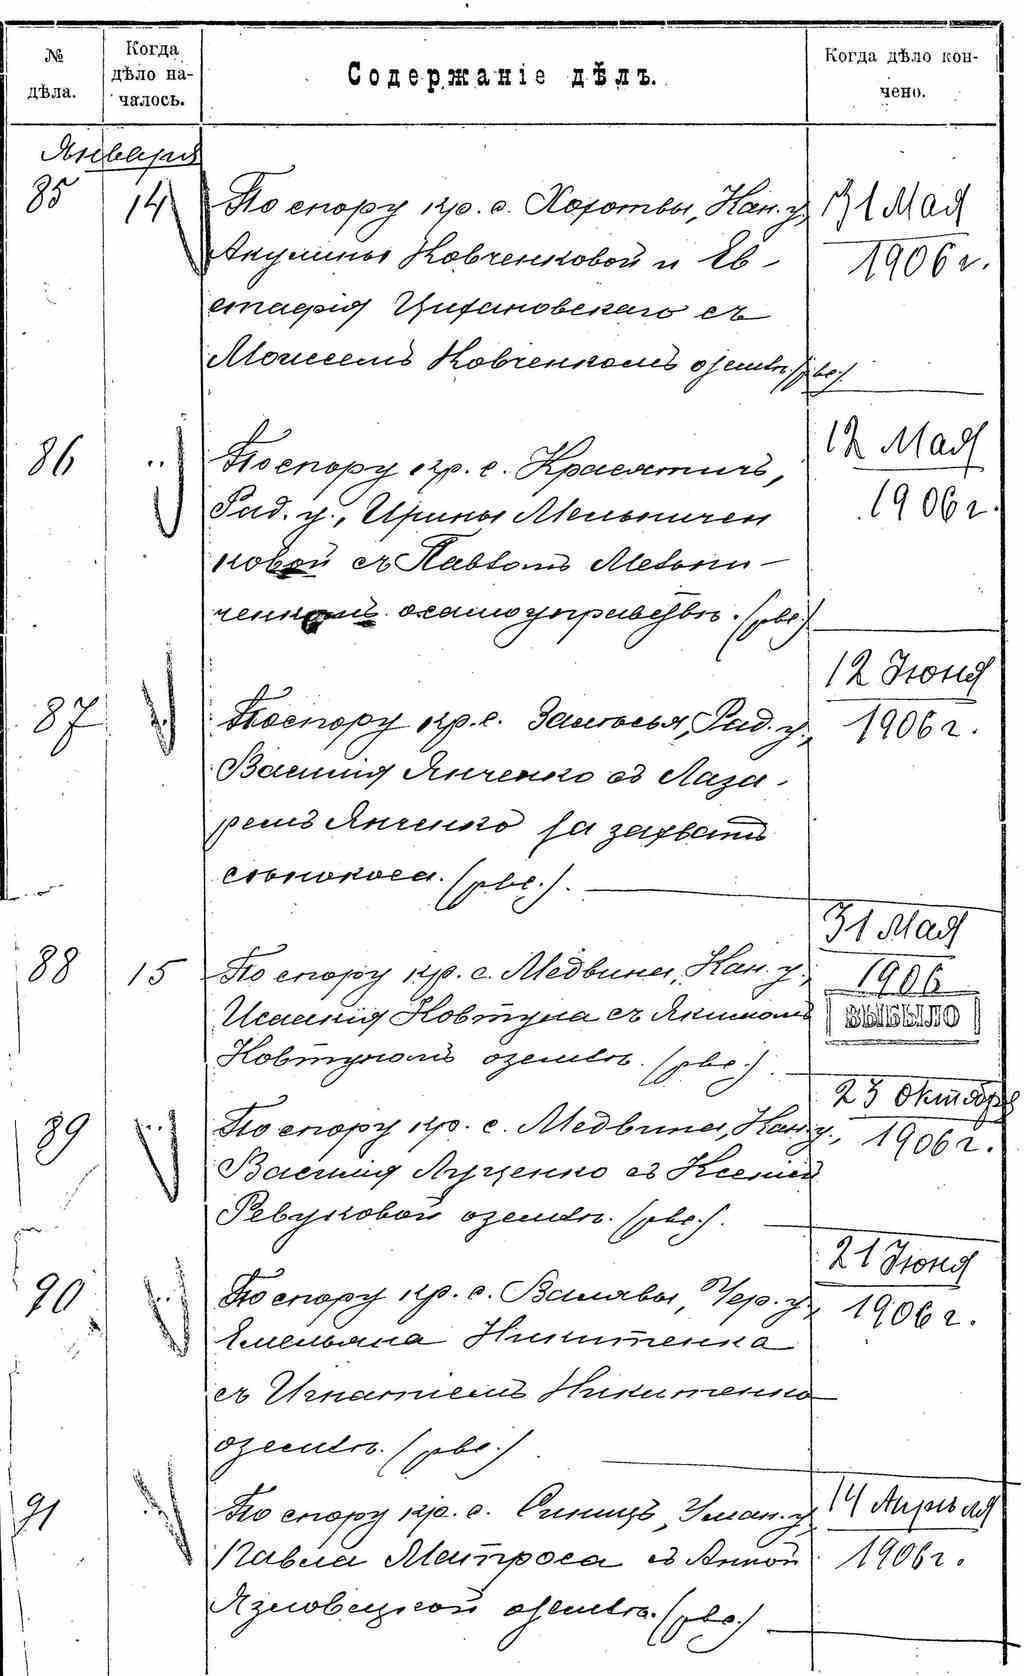 № дѣла.
Когда дѣло на-
чалось.
Содержаніе дѣлъ.
Когда дѣло кон-
чено.
Января
85 14 По спору кр. с. Хоротвы, Кан. у,
Акулины Ковченковой и Ев-
стафія Цихановскаго съ
Моисеемъ Ковченкомъ о землѣ. (рев.)
31 Мая
1906 г.
86 " По спору кр. с. Красятичъ,
Рад. у., Ирины Мельничен
ковой съ Павломъ Мельни-
ченкомъ о самоуправствѣ. (рев.)
12 Мая
1906 г.
87 " По спору кр. с. Замосья, Рад. у.,
Василія Янченко съ Лаза-
ремъ Янченко за захватъ
сѣнокоса. (рев.).
12 Іюня
1906 г.
88 15 По спору кр. с. Медвина, Кан. у.,
Исаакія Ковтуна съ Якимомъ
Ковтуномъ о землѣ. (рев.).
31 Мая
1906
ВЫБЫЛО
89 " По спору кр. с. Медвина, Кан. у.,
Василія Луценко съ Ксеніей
Ревуковой о землѣ. (рев.).
23 Октября
1906 г.
90 " По спору кр. с. Валявы, Чер. у.,
Емельяна Никитенка
съ Игнатіемъ Никитенко
о землѣ. (рев.)
21 Іюня
1906 г.
91 " По спору кр. с. Синицъ, Уман. у,
Павла Матроса съ Анной
Язловецкой о землѣ. (рев.)
14 Апрѣля
1906 г.